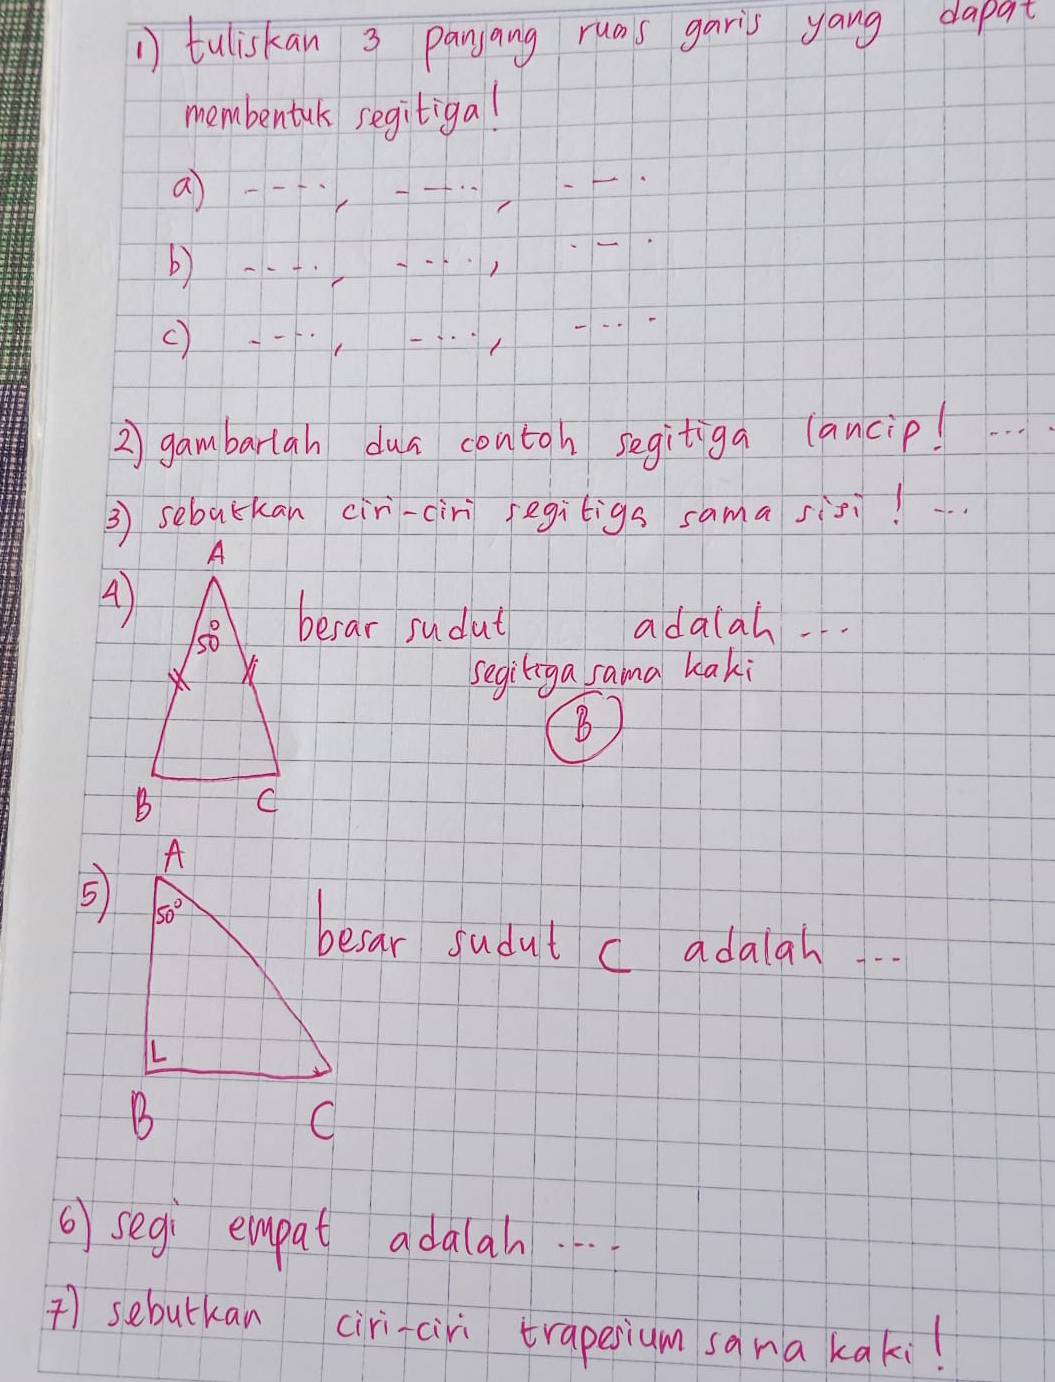 1) tuliskan 3 panjang ruas garis yang dapat
membentuk segitiga!
a) ...., ....., ....
b) ...., ....., ....
c) ...., ....., ....
2) gambarlah dua contoh segitiga lancip! ....
3) sebutkan ciri-ciri segitiga sama sisi! ...
A
4) 50° besar sudut adalah ...
segitiga sama kaki
B
B C
A
5) 50° besar sudut C adalah ...
B C
6) segi empat adalah ....
7) sebutkan ciri-ciri trapesium sama kaki!